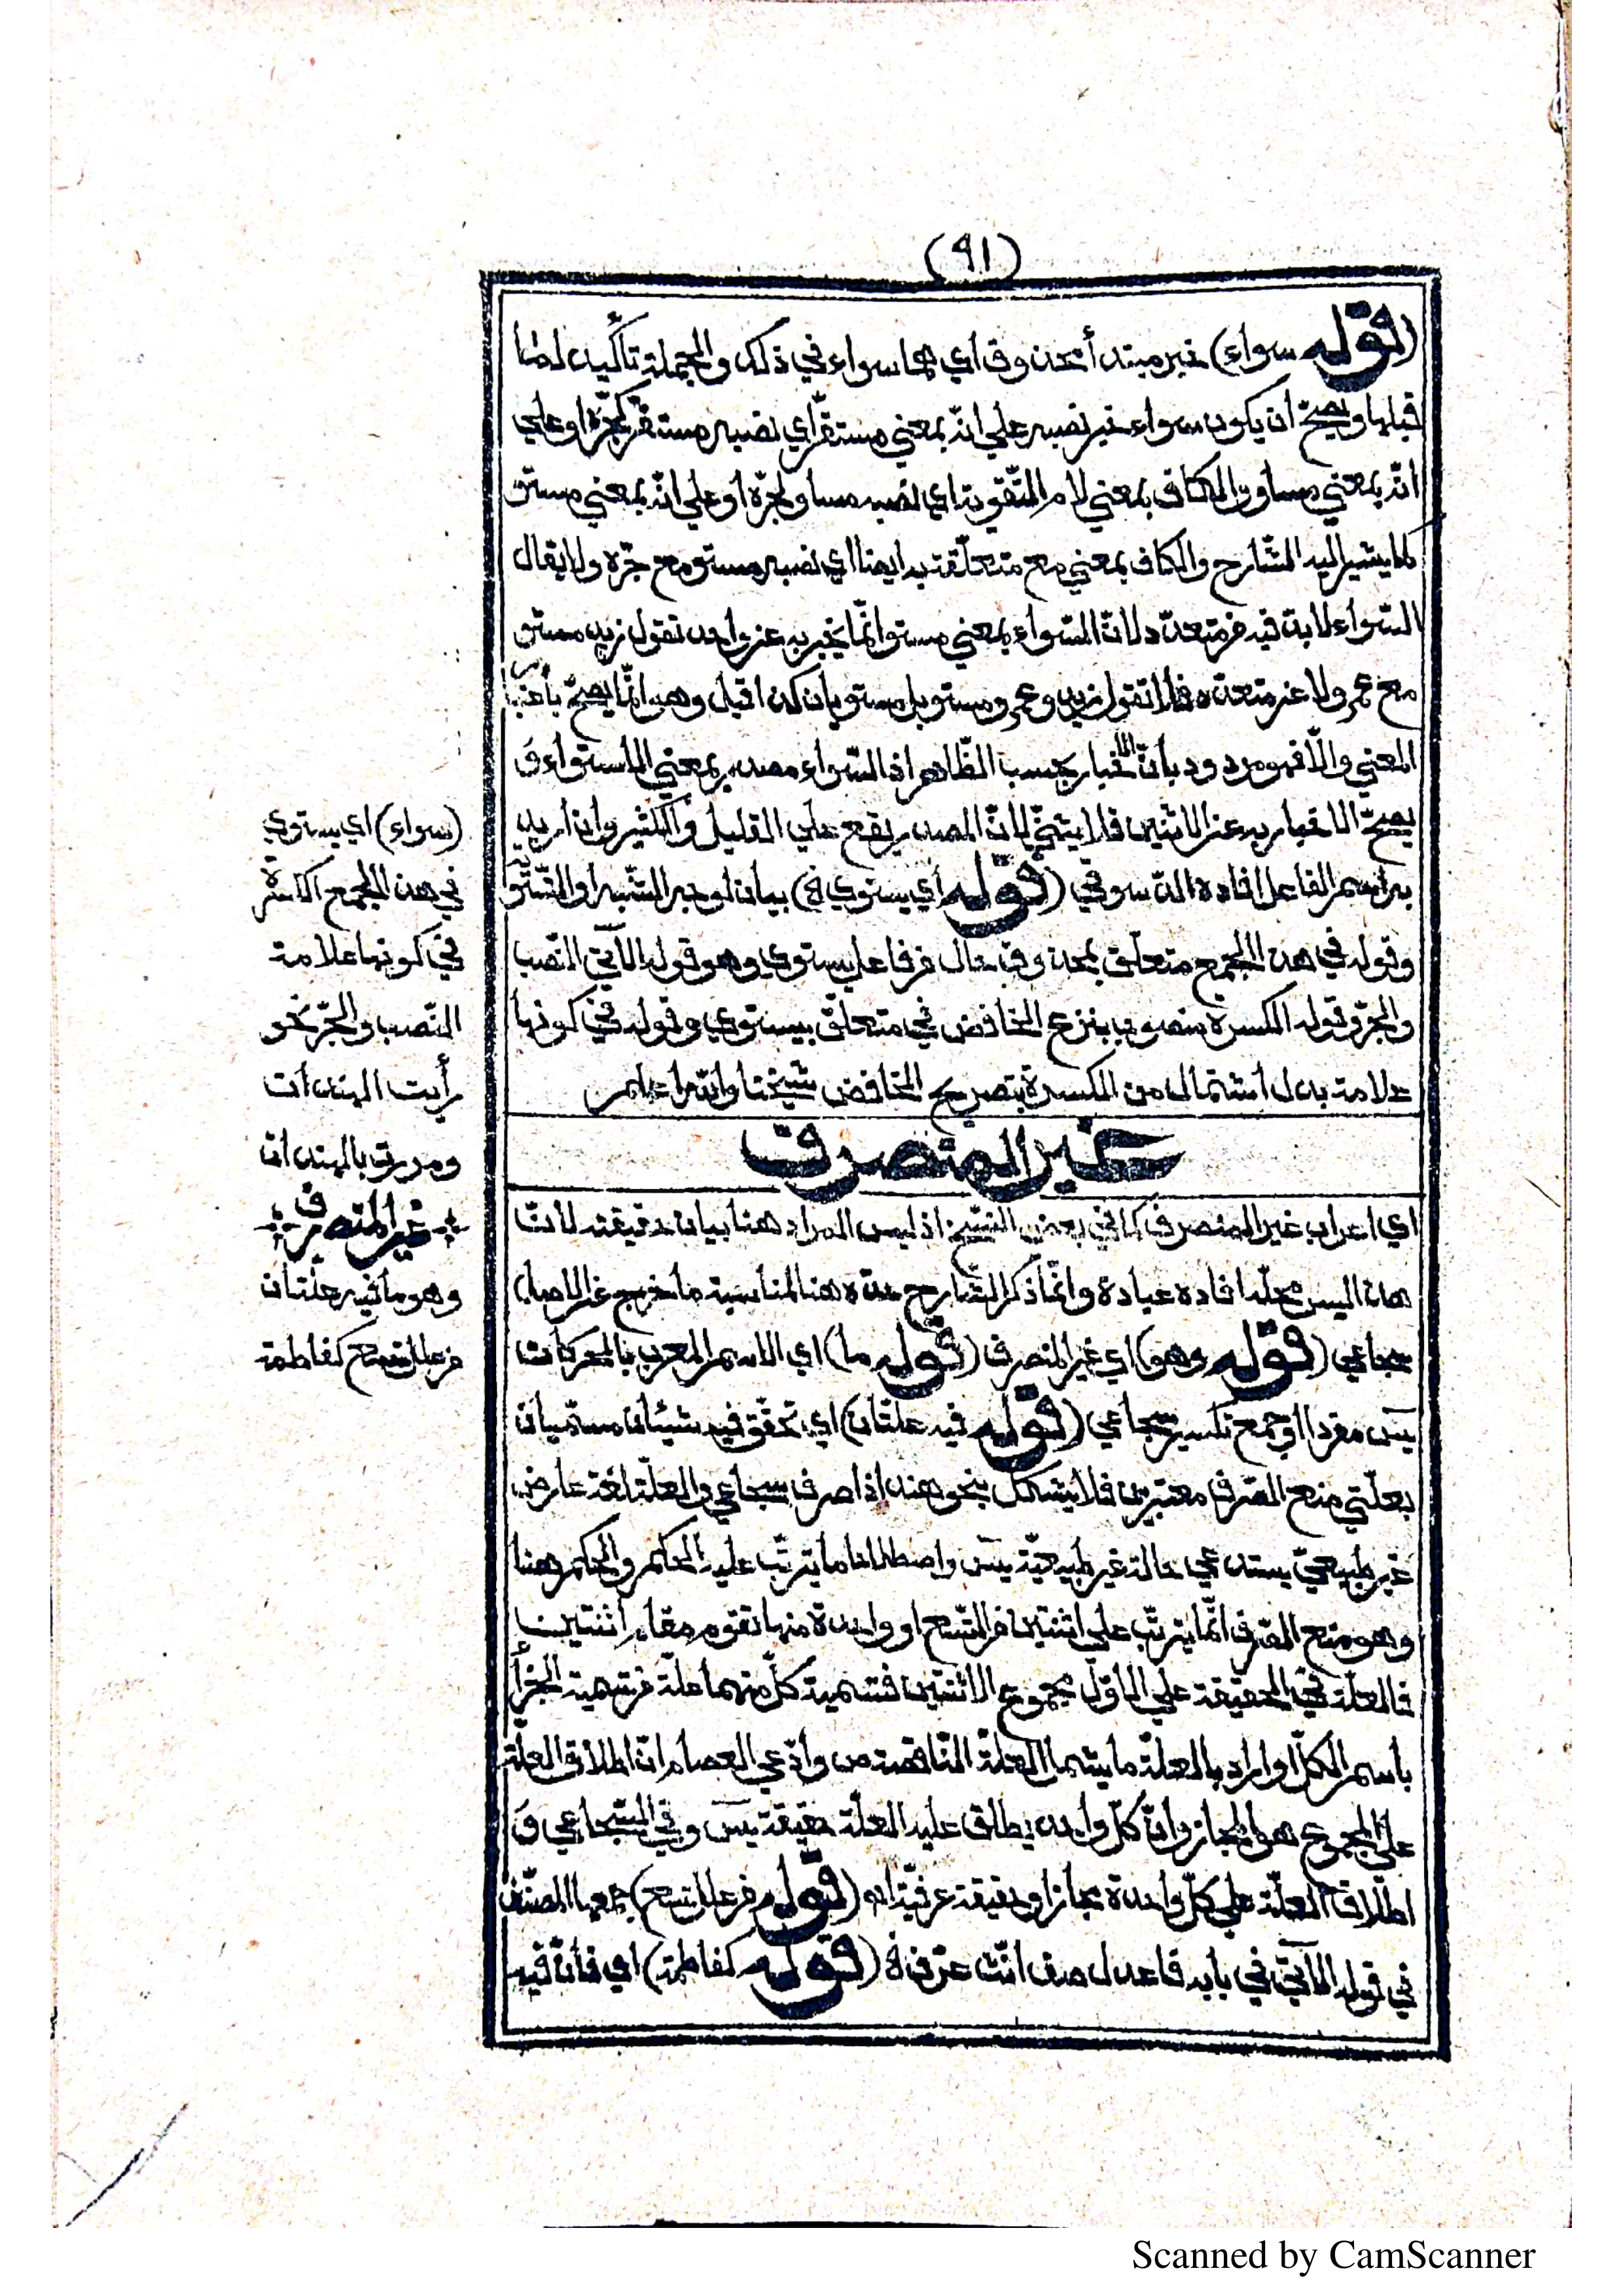 (٩١)
(قوله سواء) خبر مبتدأ محذوف أي هما سواء في ذلك والجملة تأكيد لما
قبلها ويصحّ أن يكون سواء خبر نصبه علي انّه بمعني مستقرّ اي نصبه مستقرّ كجرّه او علي
انّه بمعني مساو والكاف بمعني لام التّقوية اي نصبه مساو لجرّه أو علي انّه بمعني مستو
كما يشير اليه الشّارح والكاف بمعني مع متعلّقة به ايضا اي نصبه مستو مع جرّه ولا يقال
السّواء لا بد فيه من متعدّد لانّ السّواء بمعني مستو انّما يخبر به عن واحد تقول زيد مستو
مع عمرو ولا عن متعدّد فلا تقول زيد وعمرو مستو بل مستويان كذا قيل وهو انّما يصحّ باعتبار
المعني والّا فهو مردود بأنّ الاخبار بحسب الظّاهر اذ السّواء مصدر بمعني الاستواء وَ
يصحّ الاخبار به عن الاثنين فلا يثنّي لانّ المصدر يقع علي القليل والكثير وان اريد
به اسم الفاعل افاده الدّسوقي (قوله أي يستوي الخ) بيان لوجه الشّبه او التّسوية
وقوله في هذا الجمع متعلّق بمحذوف حال من فاعل يستوي وهو قوله الآتي النّصب
والجرّ وقوله الكسرة منصوب بنزع الخافض في متعلّق بيستوي وقوله في كونها
علامة بدل اشتمال من الكسرة بتصريح الخافض شيخنا والله أعلم
غير المنصرف
اي اعراب غير المنصرف كما في بعض النّسخ اذ ليس المراد هنا بيان حقيقته لانّ
هذا ليس محلّه افاده عبادة وانّما ذكر الشّارح حدّه هنا لمناسبة ما خرج عن الاصل
سجاعي (قوله وهو) اي غير المنصرف (قوله ما) اي الاسم المعرب بالحركات
يسَ مفردا او جمع تكسير سجاعي (قوله فيه علّتان) اي تحقّق فيه شيئان مسمّيان
بعلّتي منع الصّرف معتبرين فلا يشكل بنحو هند اذا صرف سجاعي والعلّة لغة عارض
غير طبيعيّ يستدعي حالة غير طبيعيّة يسَ واصطلاحا ما يترتّب عليه الحكم والحكم هنا
وهو منع الصّرف انّما يترتّب علي اثنتين من التّسع او واحدة منها تقوم مقام اثنتين
فالعلّة في الحقيقة علي الاوّل مجموع الاثنتين فتسمية كلّ منهما علّة من تسمية الجزء
باسم الكلّ او اراد بالعلّة ما يشمل العلّة النّاقصة ص وادّعي العصام انّ اطلاق العلّة
علي المجموع هو المجاز وانّ كلّ واحد يطلق عليه العلّة حقيقة يسَ وفي السّجاعي وَ
اطلاق العلّة علي كلّ واحدة مجازا وحقيقة عرفيّة اهـ (قوله من علل تسع) جمعها المصنّف
في قوله الآتي في بابه قاعدل صف انّث عرّف ه (قوله كفاطمة) اي فانّ فيه
(سواء) اي يستوي
في هذا الجمع الكسرة
في كونها علامة
النّصب والجرّ نحو
رأيت الهندات
ومررت بالهندات
غير المنصرف
وهو ما فيه علّتان
من علل تسع كفاطمة
Scanned by CamScanner